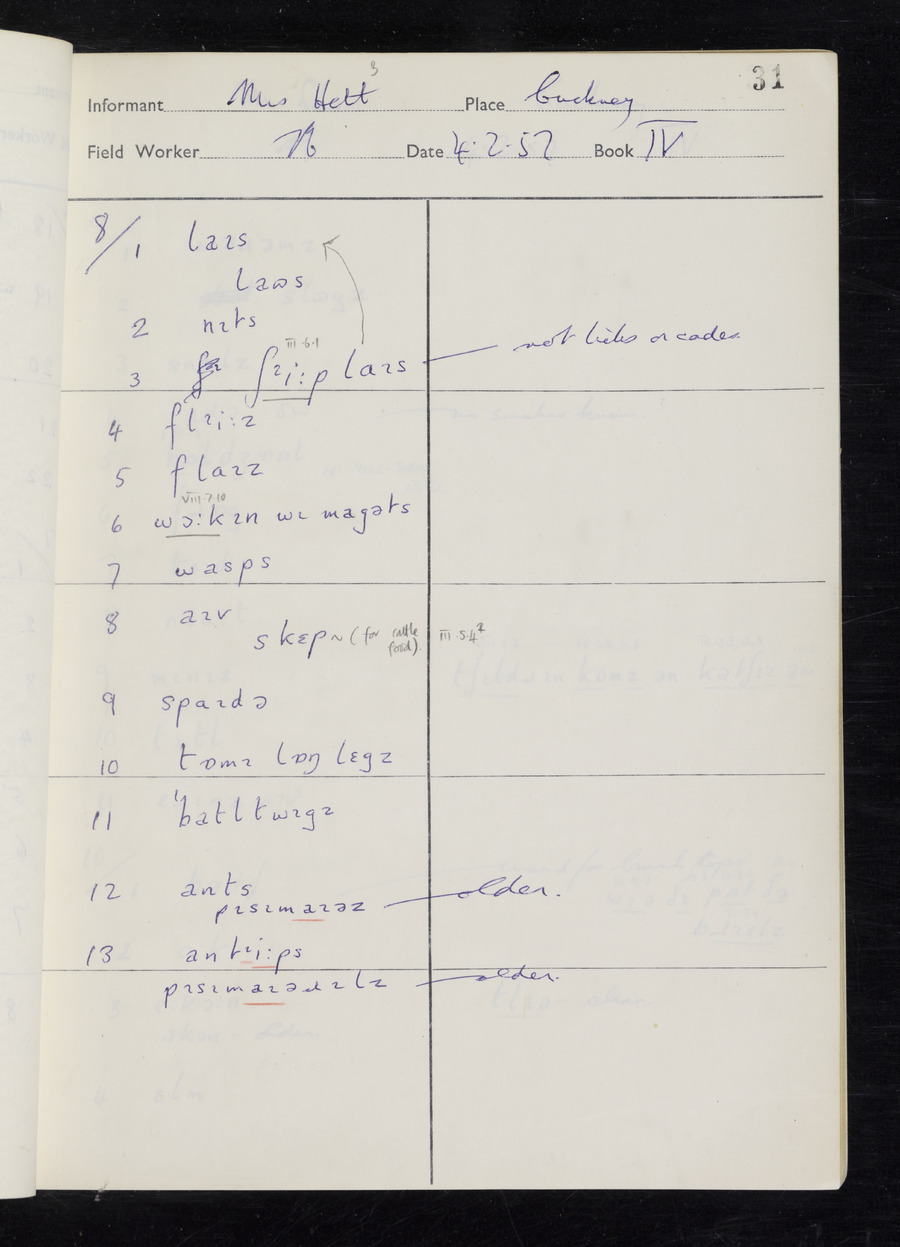 31
3
Informant Mrs Hett Place Cuckney
Field Worker Date 4.2.57 Book IV
8/1 laɪs
laʊs
2 nɪts
III.6.1
3 ʃɪi:p laɪs not ticks or cades
4 flɪi:z
5 flaɪz
VIII.7.10
6 wɔ:kɪn wɪ magəts
7 wasps
8 aɪv
skɛp ~ (for cattle food) III.5.4
9 spaɪdə
10 tɒmɪ lɒŋ lɛgz
11 ˈbatl twɪgz
12 ants
pɪsɪmaɪəz older.
13 antɪi:ps
pɪsɪmaɪəɹɪlz older.